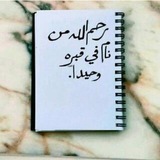 رحم الله من
نام في قبره
وحيداً.